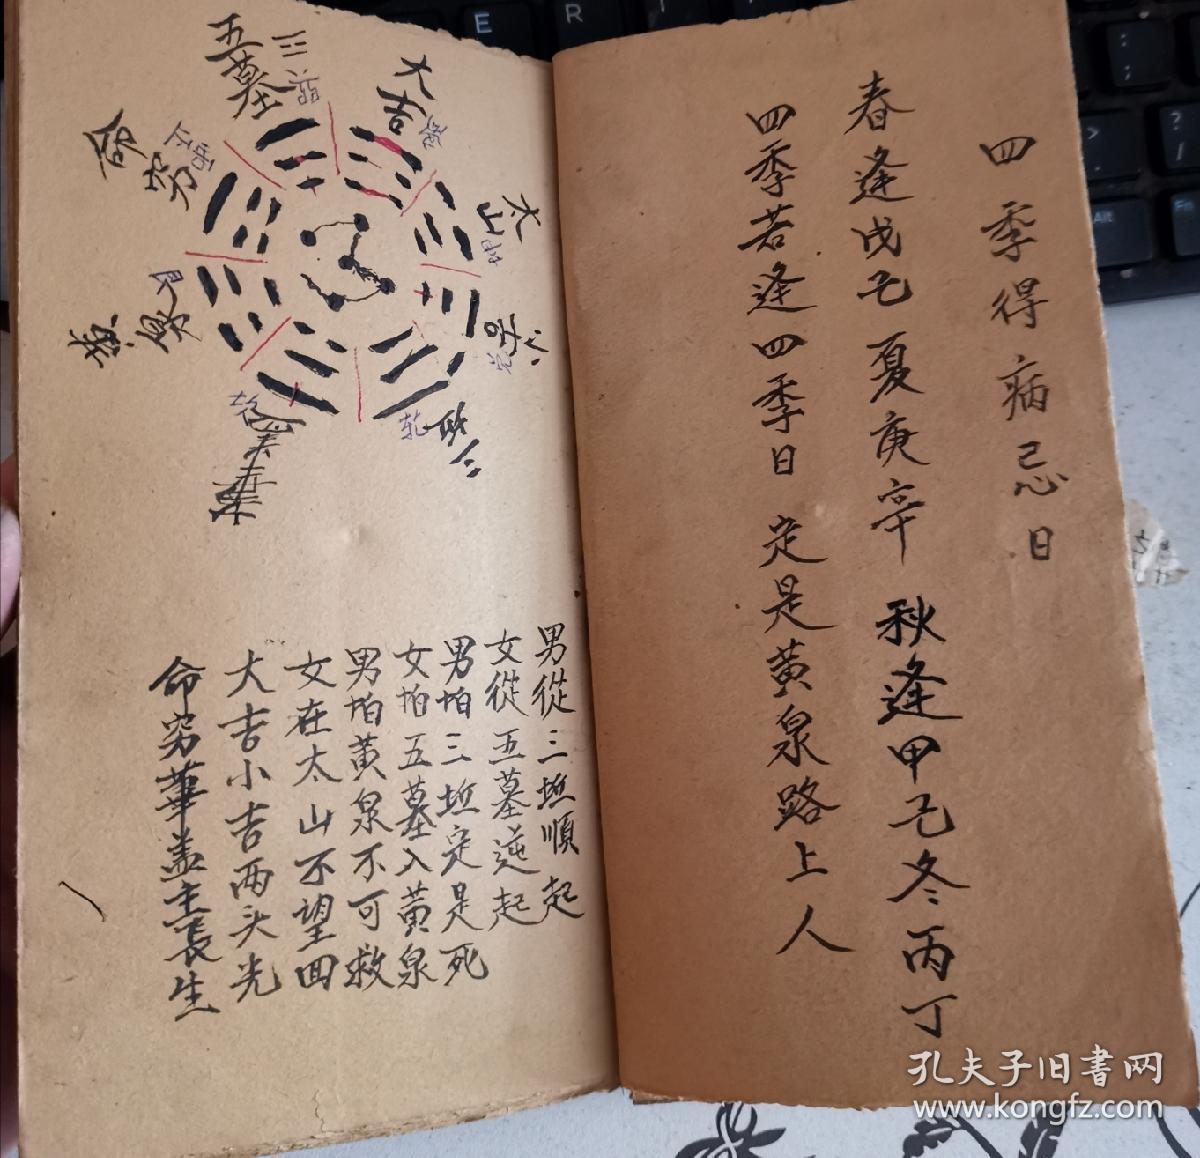 四季得病忌日
春逢戊己夏庚辛 秋逢甲乙冬丙丁
四季若逢四季日 定是黄泉路上人
五墓
大吉
太山
小吉
三坵
華蓋
黄泉
命穷
乾
艮
男從三坵順起
女從五墓逆起
男怕三坵定是死
女怕五墓入黄泉
男怕黄泉不可救
女在太山不望回
大吉小吉两头光
命穷華盖主長生
孔夫子旧书网
www.kongfz.com
E
R
Alt
Ctrl